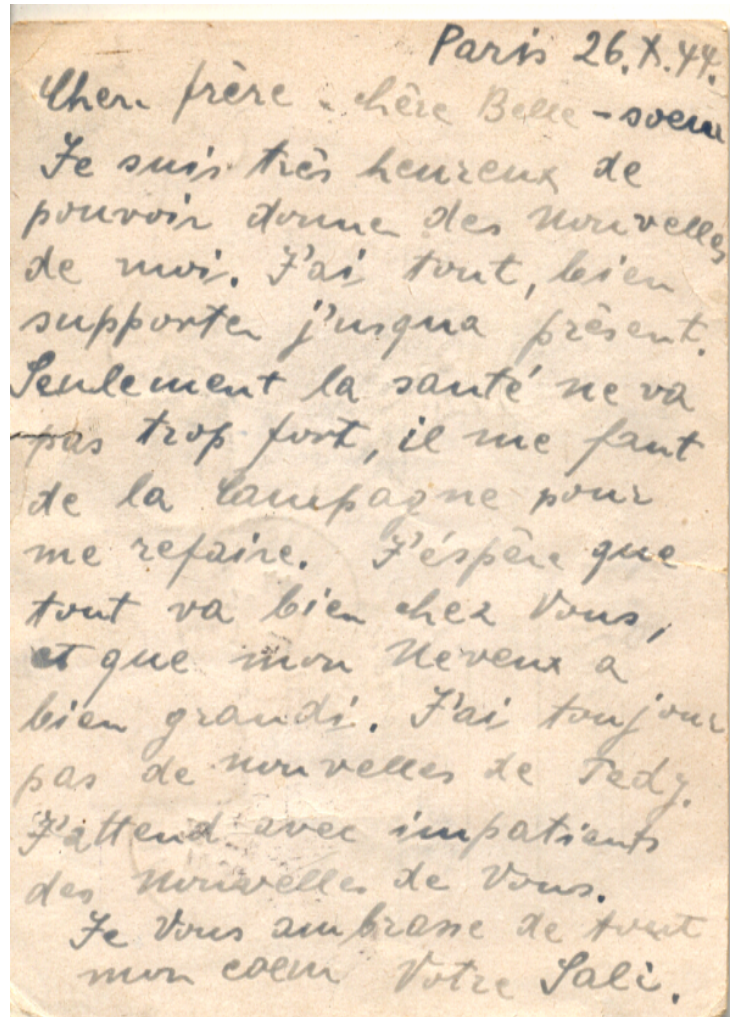 Paris 26.X.44.
Cher frère - chère Belle - soeur
Je suis très heureux de
pouvoir donne des nouvelles
de moi. J'ai tout, bien
supporter j'usqua présent.
Seulement la santé ne va
pas trop fort, il me faut
de la Campagne pour
me refaire. J'éspère que
tout va bien chez Vous,
et que mon Neveux a
bien grandi. J'ai toujour
pas de nouvelles de Tedy.
J'attend avec impatients
des Nouvelles de Vous.
Je Vous ambrasse de tout
mon coeur Votre Sali.